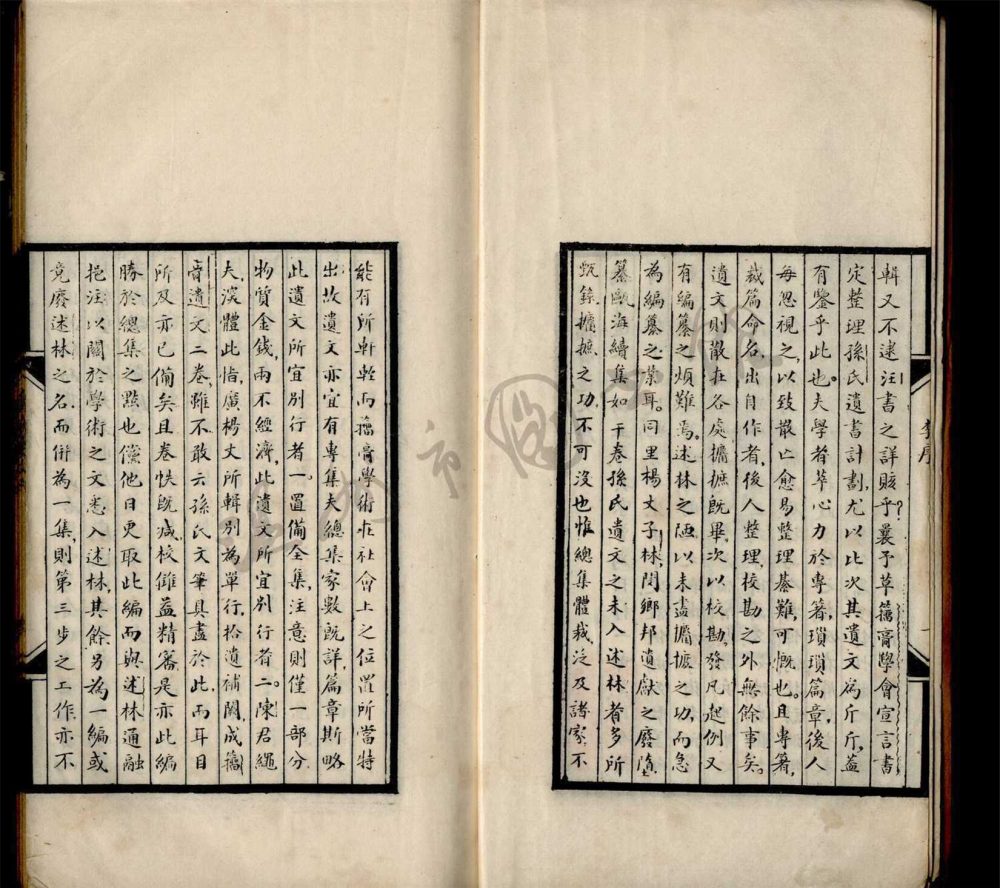 李序
輯又不逮汪書之詳賅乎？曩予草籀膏學會宣言書
定整理孫氏遺書計劃，尤以比次其遺文為斤斤，蓋
有鑒乎此也。夫學者萃心力於專著，瑣瑣篇章，後人
每忽視之，以致散亡愈易，整理綦難，可慨也。且專著，
裁篇命名，出自作者，後人整理，校勘之外無餘事矣。
遺文則散在各處，擳摭既畢，次以校勘，發凡起例，又
有編纂之煩難焉。述林之陋，以未盡擳摭之功，而急
為編纂之業耳。同里楊丈子林，閔鄉邦遺獻之廢墮，
纂甌海續集如干卷，孫氏遺文之未入述林者多所
甄錄，擳摭之功，不可沒也。惟總集體裁，泛及諸家，不
能有所軒輊，而籀膏學術在社會上之位置所當特
出，故遺文亦宜有專集，夫總集家數既詳，篇章斯略
此遺文所宜別行者一。置備全集，注意則僅一部分
物質金錢，兩不經濟，此遺文所宜別行者二。陳君繩
夫，深體此恉，廣楊丈所輯別為單行，拾遺補闕，成籀
膏遺文二卷，雖不敢云孫氏文筆具盡於此，而耳目
所及亦已備矣。且卷帙既減，校讎益精審，是亦此編
勝於總集之點也。儻他日更取此編而與述林通融
挹注，以關於學術之文悉入述林，其餘另為一編，或
竟廢述林之名，而併為一集，則第三步之工作，亦不